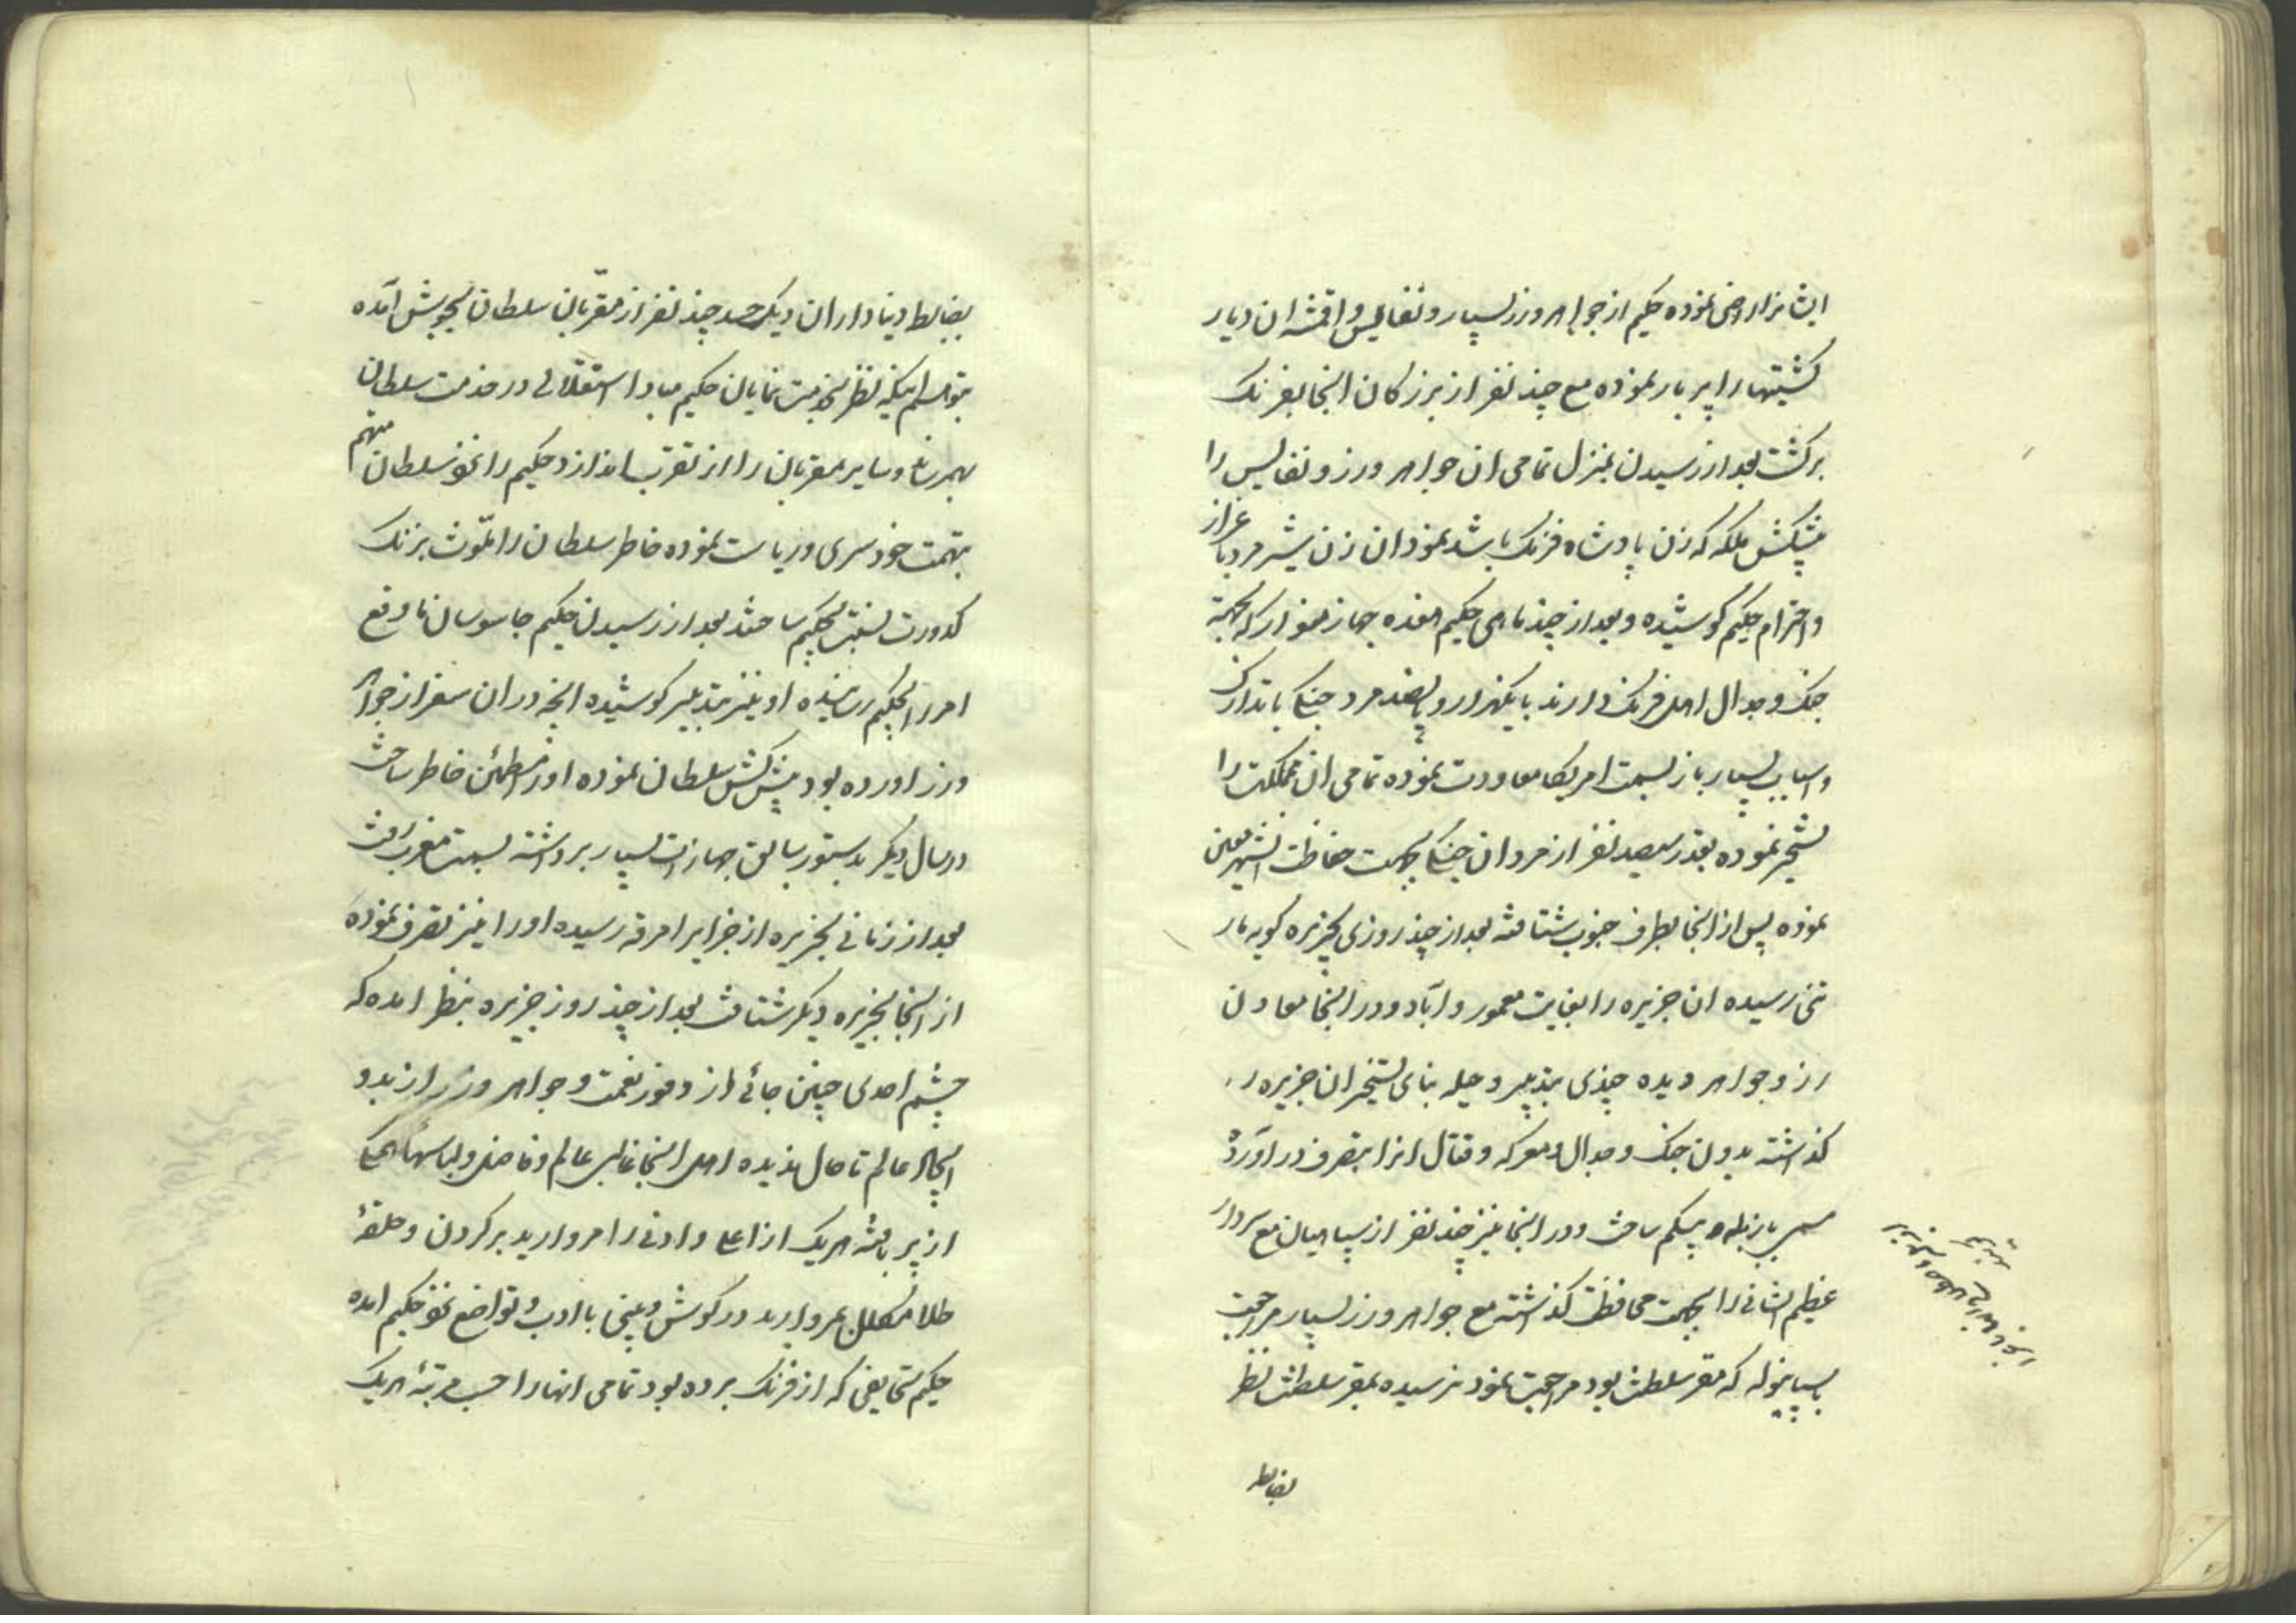 ایشانرا راضی نموده حکیم از جواهر وزر بسیار و نفایس و اقمشه ان دیار
کشتیها را پر بار نموده مع چند نفر از بزرکان انجا بفرنک
برکشت بعد از رسیدن بمنزل تمامی ان جواهر وزر و نفایس را
پیشکش ملکه که زن پادشاه فرنک باشد نمود ان زن شیر مرد باعزاز
و احترام حکیم کوشیده و بعد از چند ماهی حکیم هفده جهاز منوار که بجهة
جنک و جدال اهل فرنک دارند با یکهزار و پانصد مرد جنکی با تدارک
و اسباب بسیار باز بسمت امریکا معاودت نموده تمامی ان مملکت را
تسخیر نموده بقدر سیصد نفر از مردان جنکی بجهت حفاظت انشهر معین
نموده پس از انجا بطرف جنوب شتافته بعد از چند روزی بجزیره کوبه مار
تنی رسیده ان جزیره را بغایت معمور و آباد و در انجا معادن
زر و جواهر دیده چندی بتدبیر و حیله بنای تسخیر ان جزیره را
کذاشته بدون جنک و جدال و معرکه و قتال انرا بتصرف در آورد
بازبطه محکم ساخت و در انجا نیز چند نفر از سپاهیان مع سردار
عظیم الشانی را بجهت محافظت کذاشته مع جواهر وزر بسیار مراجعت
باسپانیوله که مقر سلطنت بود مراجعت نمود نرسیده بمقر سلطنت نظر
بضابطه
بضابطه دنیاداران دیک حسد چند نفر از مقربان سلطان بجوش آمده
بتوهم اینکه نظر بخدمت نمایان حکیم مبادا استقلالی در خدمت سلطان
بهمرساند و سایر مقربان را از تقرب اندازد حکیم را نزد سلطان متهم
بتهمت خود سری و ریاست نموده خاطر سلطان را ملوّث بزنک
کدورت نسبت بحکیم ساختند بعد از رسیدن حکیم جاسوسان ما وقع
امر را بحکیم رسانیده او نیز بتدبیر کوشیده انچه در ان سفر از جواهر
وزر اورده بود پیشکش سلطان نموده او را مطمئن خاطر ساخت
در سال دیکر بدستور سابق جهازات بسیار برداشته بسمت مغرب رفت
بعد از زمانی بجزیره از جزایر امرقه رسیده او را نیز تصرف نموده
از انجا بجزیره دیکر شتافت بعد از چند روز جزیره بنظر امده که
چشم احدی چنین جائی از وفور نعمت و جواهر وزر از بدو
ایجاد عالم تا حال ندیده اهل انجا غالب عالم و فاضل و لباسها همکی
از پر بافته هریک از اعلی و ادنی را مروارید بر کردن و حلقهٔ
طلا مکلل بمروارید در کوش و بینی با ادب و تواضع نزد حکیم امده
حکیم تحایفی که از فرنک برده بود تمامی انها را حسب مرتبهٔ هریک